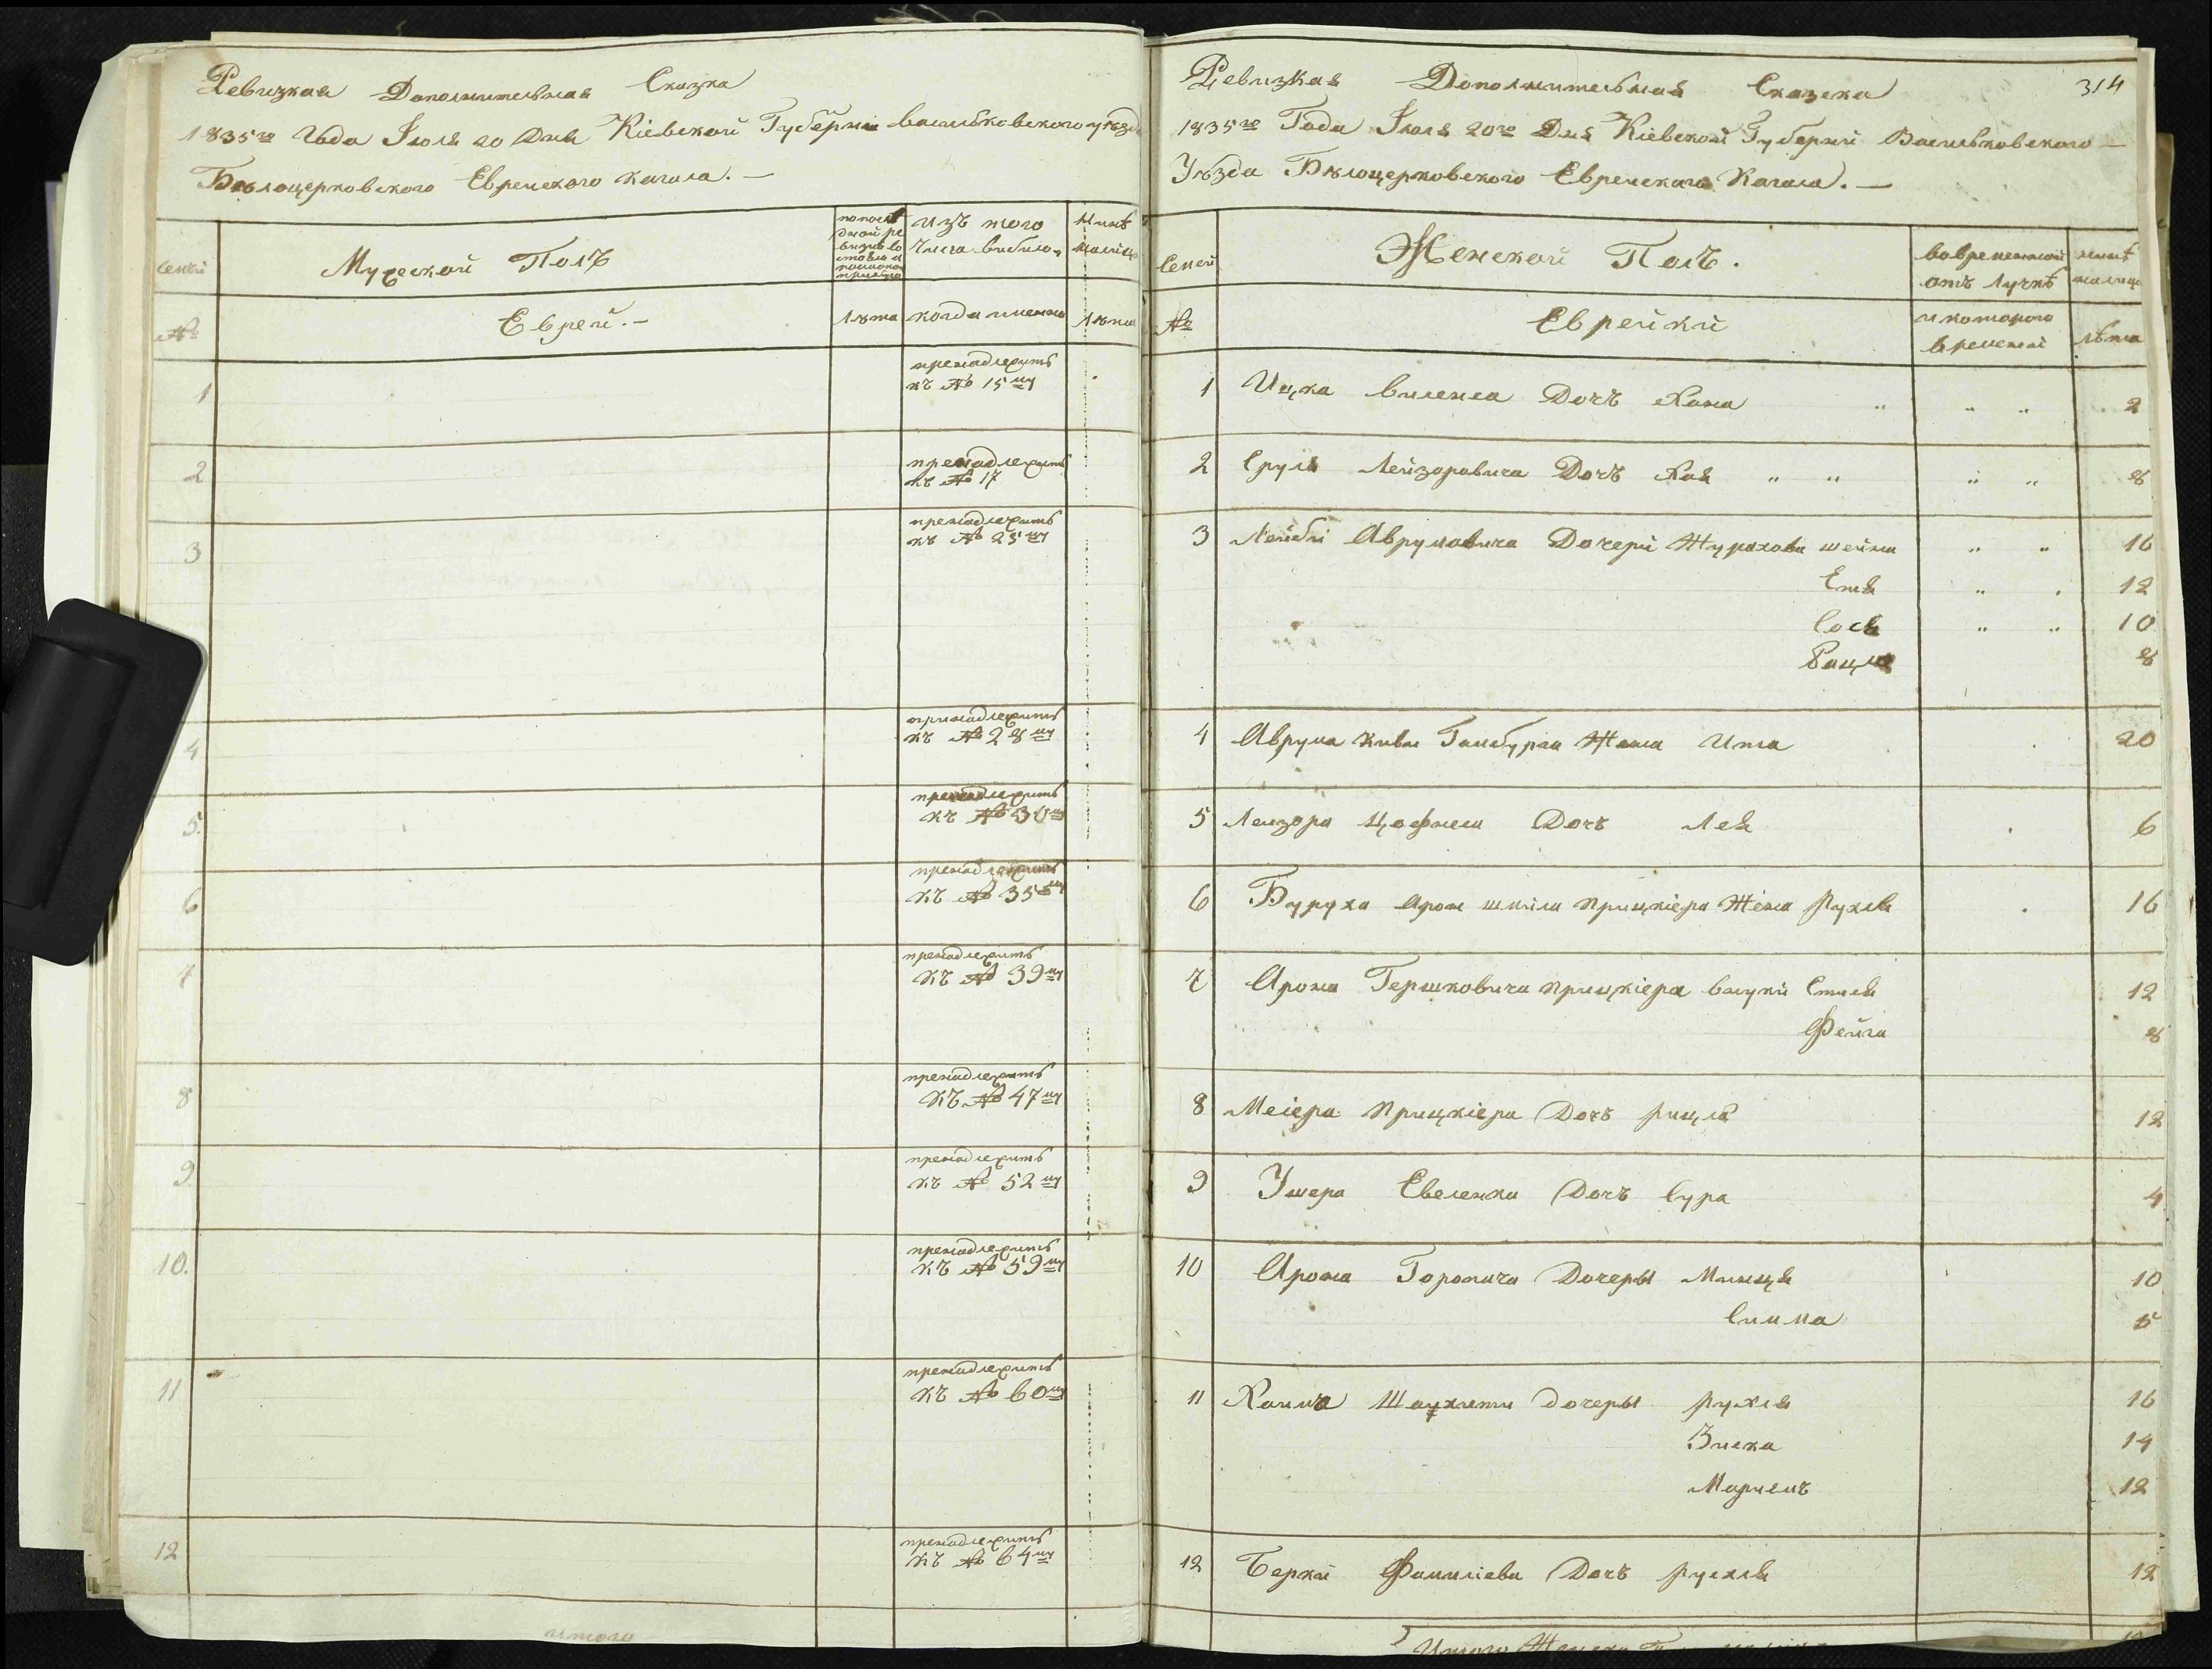 Ревизкая Дополнительная Сказка
1835го Года Июля 20 Дня Кіевской Губерніи васильковского уѣзда
Бѣлоцерковского Еврейского кагала. —
Семей
Мужеской Полъ
изъ того
числа выбило
№
Еврей. —
лѣта
когда именно
лѣта
1
принадлежитъ
къ № 15му
2
принадлежитъ
къ № 17
3
принадлежитъ
къ № 25му
4
принадлежитъ
къ № 28му
5.
принадлежитъ
къ № 30му
6
принадлежитъ
къ № 35му
7
принадлежитъ
къ № 39му
8
принадлежитъ
къ № 47му
9
принадлежитъ
къ № 52му
10.
принадлежитъ
къ № 59му
11
принадлежитъ
къ № 60му
12
принадлежитъ
къ № 64му
итого
314
Ревизкая Дополнительная Сказка
1835го Года Июля 20го Дня Кіевской Губерніи Васильковского —
Уѣзда Бѣлоцерковского Еврейскаго Кагала. —
Семей
Женской Полъ.
вовременной
отъ лучкѣ
№
Еврейки
и которого
времени
лѣта
1 Ицка виленса Дочъ Хана 2
2 Сруля Лейзоровича Дочъ Хая 8
3 Лейби Аврумовича Дочери Журахова шейна 16
Етя 12
Сося 10
Рацля 8
4 Аврума Кивы Гамбурга Жена Ита 20
5 Лейзора Дочъ Лея 6
6 Буруха Арон шмила прицкіера Жена Рухля 16
7 Арона Гершковича прицкіера внуки Стися 12
Фейга 8
8 Меіера прицкіера Дочъ рицля 12
9 Ушера Евеленка Дочъ Сура 4
10 Арона Горопича Дочеры Минця 10
Симма 5
11 Хаима дочеры рухля 16
Зиска 14
Мариемъ 12
12 Берки Фаиміева Дочъ рухля 12